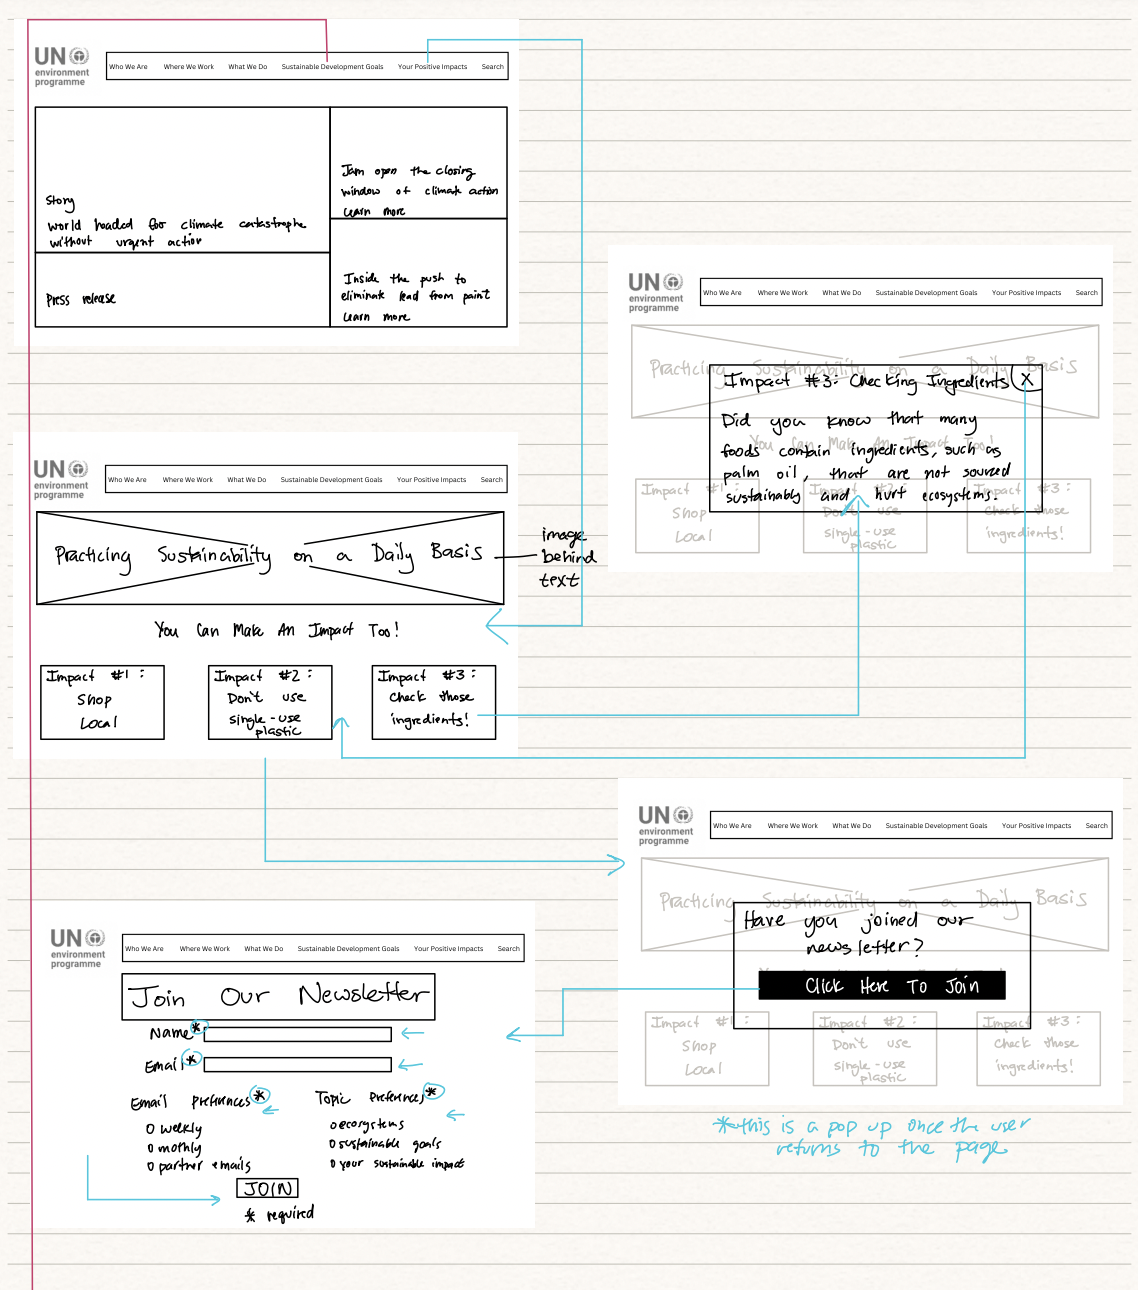 UN
environment
programme
Who We Are Where We Work What We Do Sustainable Development Goals Your Positive Impacts Search
Story
world headed for climate catastrophe
without urgent action
Press release
Jam open the closing
window of climate action
Learn more
Inside the push to
eliminate lead from paint
Learn more
UN
environment
programme
Who We Are Where We Work What We Do Sustainable Development Goals Your Positive Impacts Search
Practicing Sustainability on a Daily Basis
You Can Make An Impact Too!
Impact #1:
Shop
Local
Impact #2:
Don't use
single-use
plastic
Impact #3:
Check those
ingredients!
image
behind
text
UN
environment
programme
Who We Are Where We Work What We Do Sustainable Development Goals Your Positive Impacts Search
Practicing Sustainability on a Daily Basis
Impact #3: Checking Ingredients X
Did you know that many
foods contain ingredients, such as
palm oil, that are not sourced
sustainably and hurt ecosystems.
You Can Make An Impact Too!
Impact #1:
Shop
Local
Impact #2:
Don't use
single-use
plastic
Impact #3:
Check those
ingredients!
UN
environment
programme
Who We Are Where We Work What We Do Sustainable Development Goals Your Positive Impacts Search
Practicing Sustainability on a Daily Basis
Have you joined our
newsletter?
Click Here To Join
Impact #1:
Shop
Local
Impact #2:
Don't use
single-use
plastic
Impact #3:
Check those
ingredients!
*this is a pop up once the user
returns to the page
UN
environment
programme
Who We Are Where We Work What We Do Sustainable Development Goals Your Positive Impacts Search
Join Our Newsletter
Name*
Email*
Email preferences*
o weekly
o monthly
o partner emails
Topic preferences*
o ecosystems
o sustainable goals
o your sustainable impact
JOIN
* required